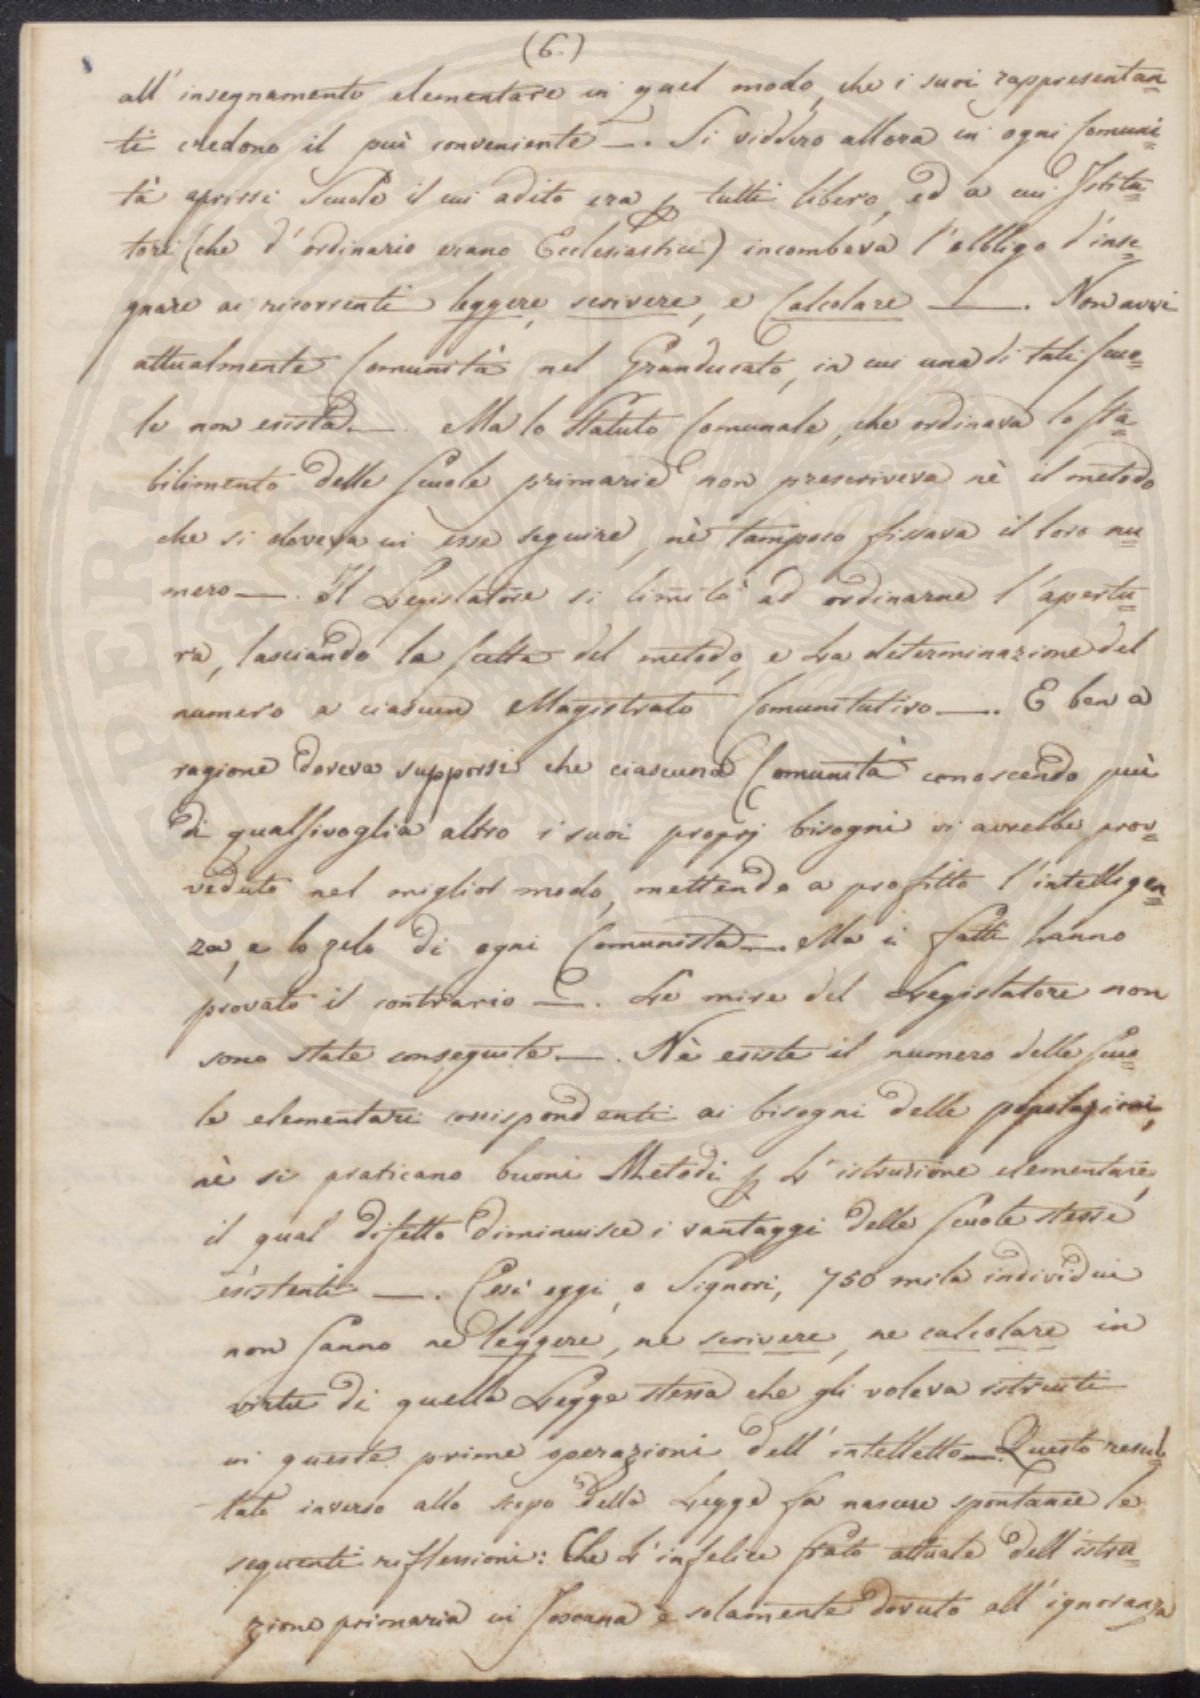 (6.)
all' insegnamento elementare in quel modo, che i suoi rappresentan=
ti credono il più conveniente —. Si viddero allora in ogni Comuni=
tà aprirsi Scuole il cui adito era p tutti libero, ed a cui Istitu=
tori (che d' ordinario erano Ecclesiastici) incombeva l' obbligo d'inse=
gnare ai ricorrenti leggere, scrivere, e Calcolare —. Non avvi
attualmente Comunità nel Granducato, in cui una di tali Scuo=
le non esista —. Ma lo Statuto Comunale, che ordinava lo sta=
bilimento delle Scuole primarie non prescriveva nè il metodo
che si doveva in esse seguire, nè tampoco fissava il loro nu=
mero —. Il Legislatore si limitò ad ordinarne l' apertu=
ra, lasciando la scelta del metodo, e La determinazione del
numero a ciascun Magistrato Comunitativo —. E ben a
ragione doveva supporsi che ciascuna Comunità conoscendo più
di qualsivoglia altro i suoi proprj bisogni vi avrebbe prov=
veduto nel miglior modo, mettendo a profitto l' intelligen=
za, e lo zelo di ogni Comunista —. Ma i fatti hanno
provato il contrario —. Le mire del Legislatore non
sono state conseguite —. Nè esiste il numero delle Scuo=
le elementari corrispondenti ai bisogni delle popolazioni,
nè si praticano buoni Metodi p L' istruzione elementare,
il qual difetto diminuisce i vantaggi delle Scuole stesse
esistenti —. Così oggi, o Signori, 750 mila individui
non sanno ne leggere, ne scrivere, ne calcolare in
virtù di quella Legge stessa che gli voleva istruiti
in queste prime operazioni dell' intelletto —. Questo resul=
tato inverso allo scopo della Legge fa nascere spontanee le
seguenti riflessioni: Che L' infelice stato attuale dell' istru=
zione primaria in Toscana è solamente dovuto all' ignoranza